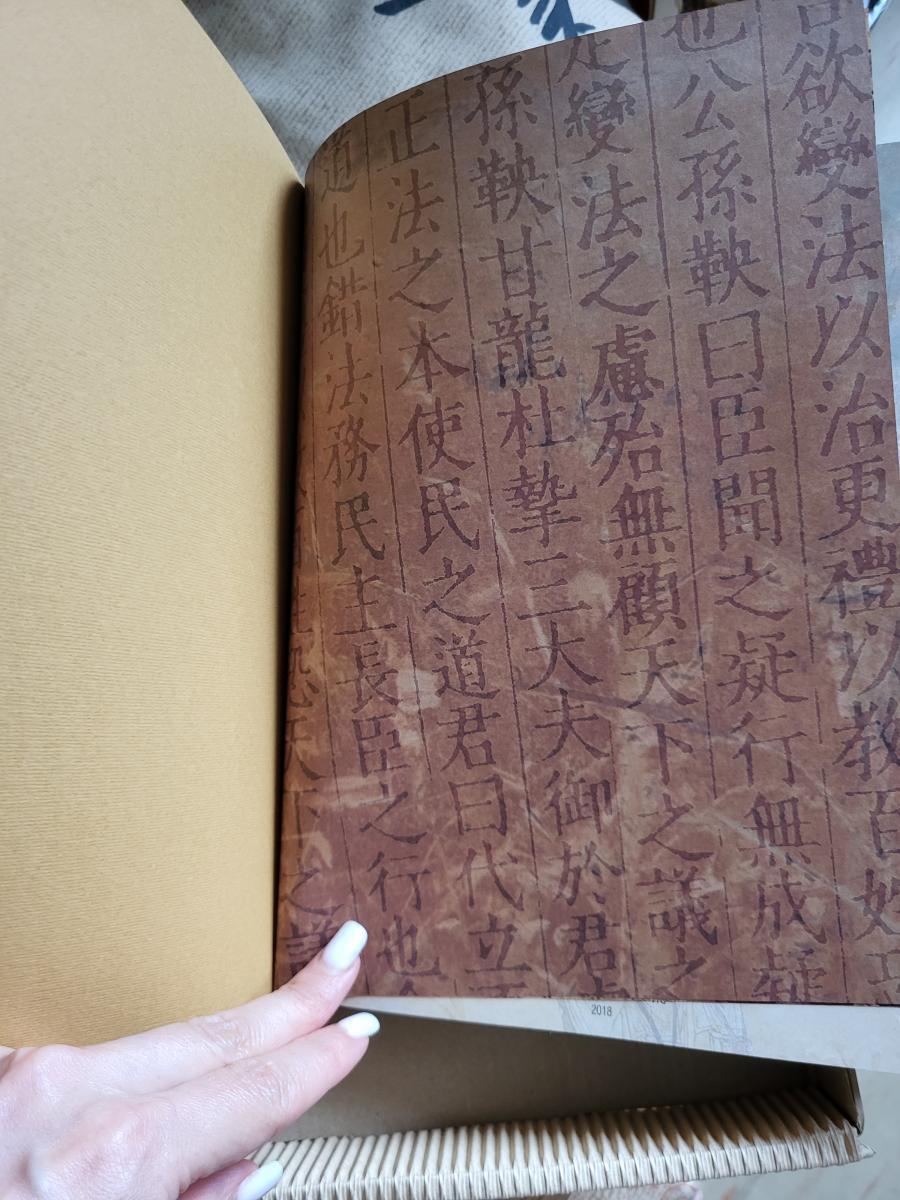 欲變法以治更禮以教百姓
也公孫鞅曰臣聞之疑行無成疑
定變法之慮殆無顧天下之議之
孫鞅甘龍杜摯三大夫御於君
正法之本使民之道君曰代立
道也錯法務民主長臣之行也
恐天下之議
2018